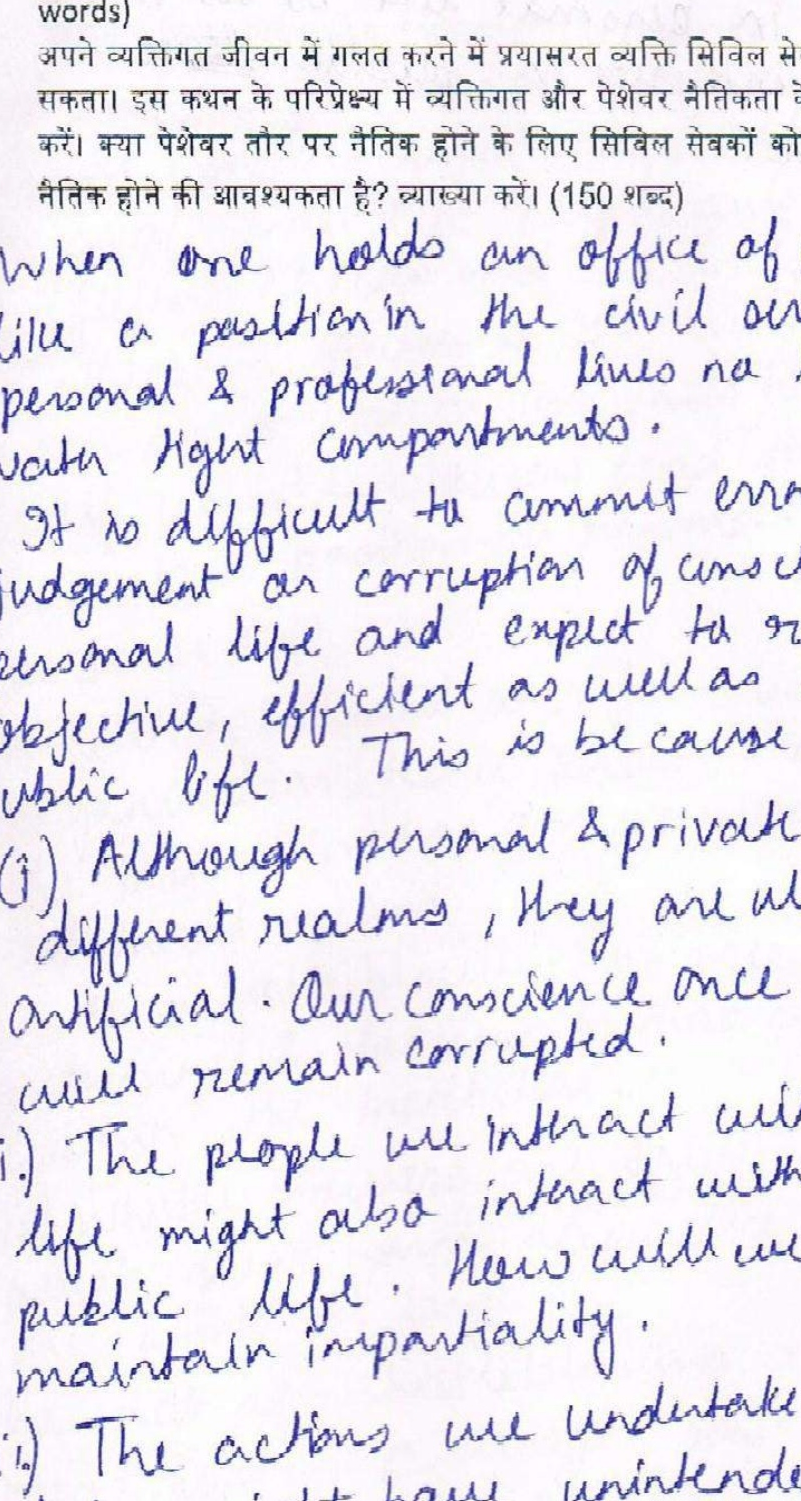 words)
अपने व्यक्तिगत जीवन में गलत करने में प्रयासरत व्यक्ति सिविल से
सकता। इस कथन के परिप्रेक्ष्य में व्यक्तिगत और पेशेवर नैतिकता के
करें। क्या पेशेवर तौर पर नैतिक होने के लिए सिविल सेवकों को
नैतिक होने की आवश्यकता है? व्याख्या करें। (150 शब्द)
When one holds an office of
like a position in the civil ser
personal & professional lives no
water tight compartments.
It is difficult to commit erro
judgement or corruption of consci
personal life and expect to r
objective, efficient as well as
public life. This is because
(i) Although personal & private
different realms, they are ul
artificial. Our conscience once
will remain corrupted.
i.) The people we interact wi
life might also interact with
public life. How will we
maintain impartiality.
i.) The actions we undertake
have unintende